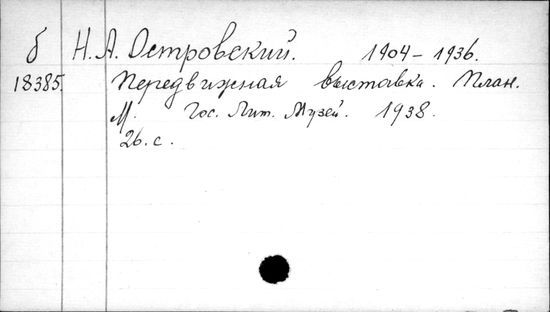 б Н. А. Островский. 1904-1936.
18385. Передвижная выставка. План.
М. Гос. Лит. Музей. 1938.
26. с.